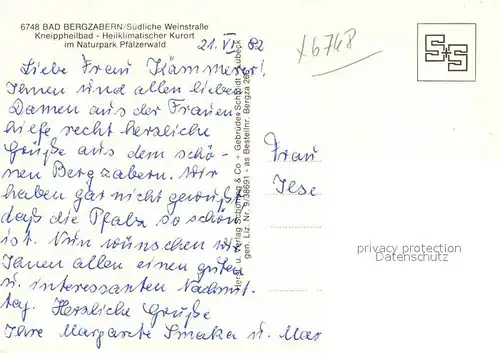 6748 BAD BERGZABERN/Südliche Weinstraße
Kneippheilbad - Heilklimatischer Kurort
im Naturpark Pfälzerwald
21. VI. 82
x6748
Liebe Frau Kämmerer!
Ihnen und allen lieben
Damen aus der Frauen
hilfe recht herzliche
Grüße aus dem schö-
nen Bergzabern. Wir
haben gar nicht gewußt
daß die Pfalz so schön
ist. Nun wünschen wir
Ihnen allen einen guten
u. interessanten Nachmit.
tag. Herzliche Grüße
Ihre Margarete Smaka u. Mar
Herst. u. Verlag Schöning & Co + Gebrüder Schmidt, Lübeck
gen. Liz. Nr. 9/38691 - as Bestellnr. Bergza
Frau
Ilse
privacy protection
Datenschutz